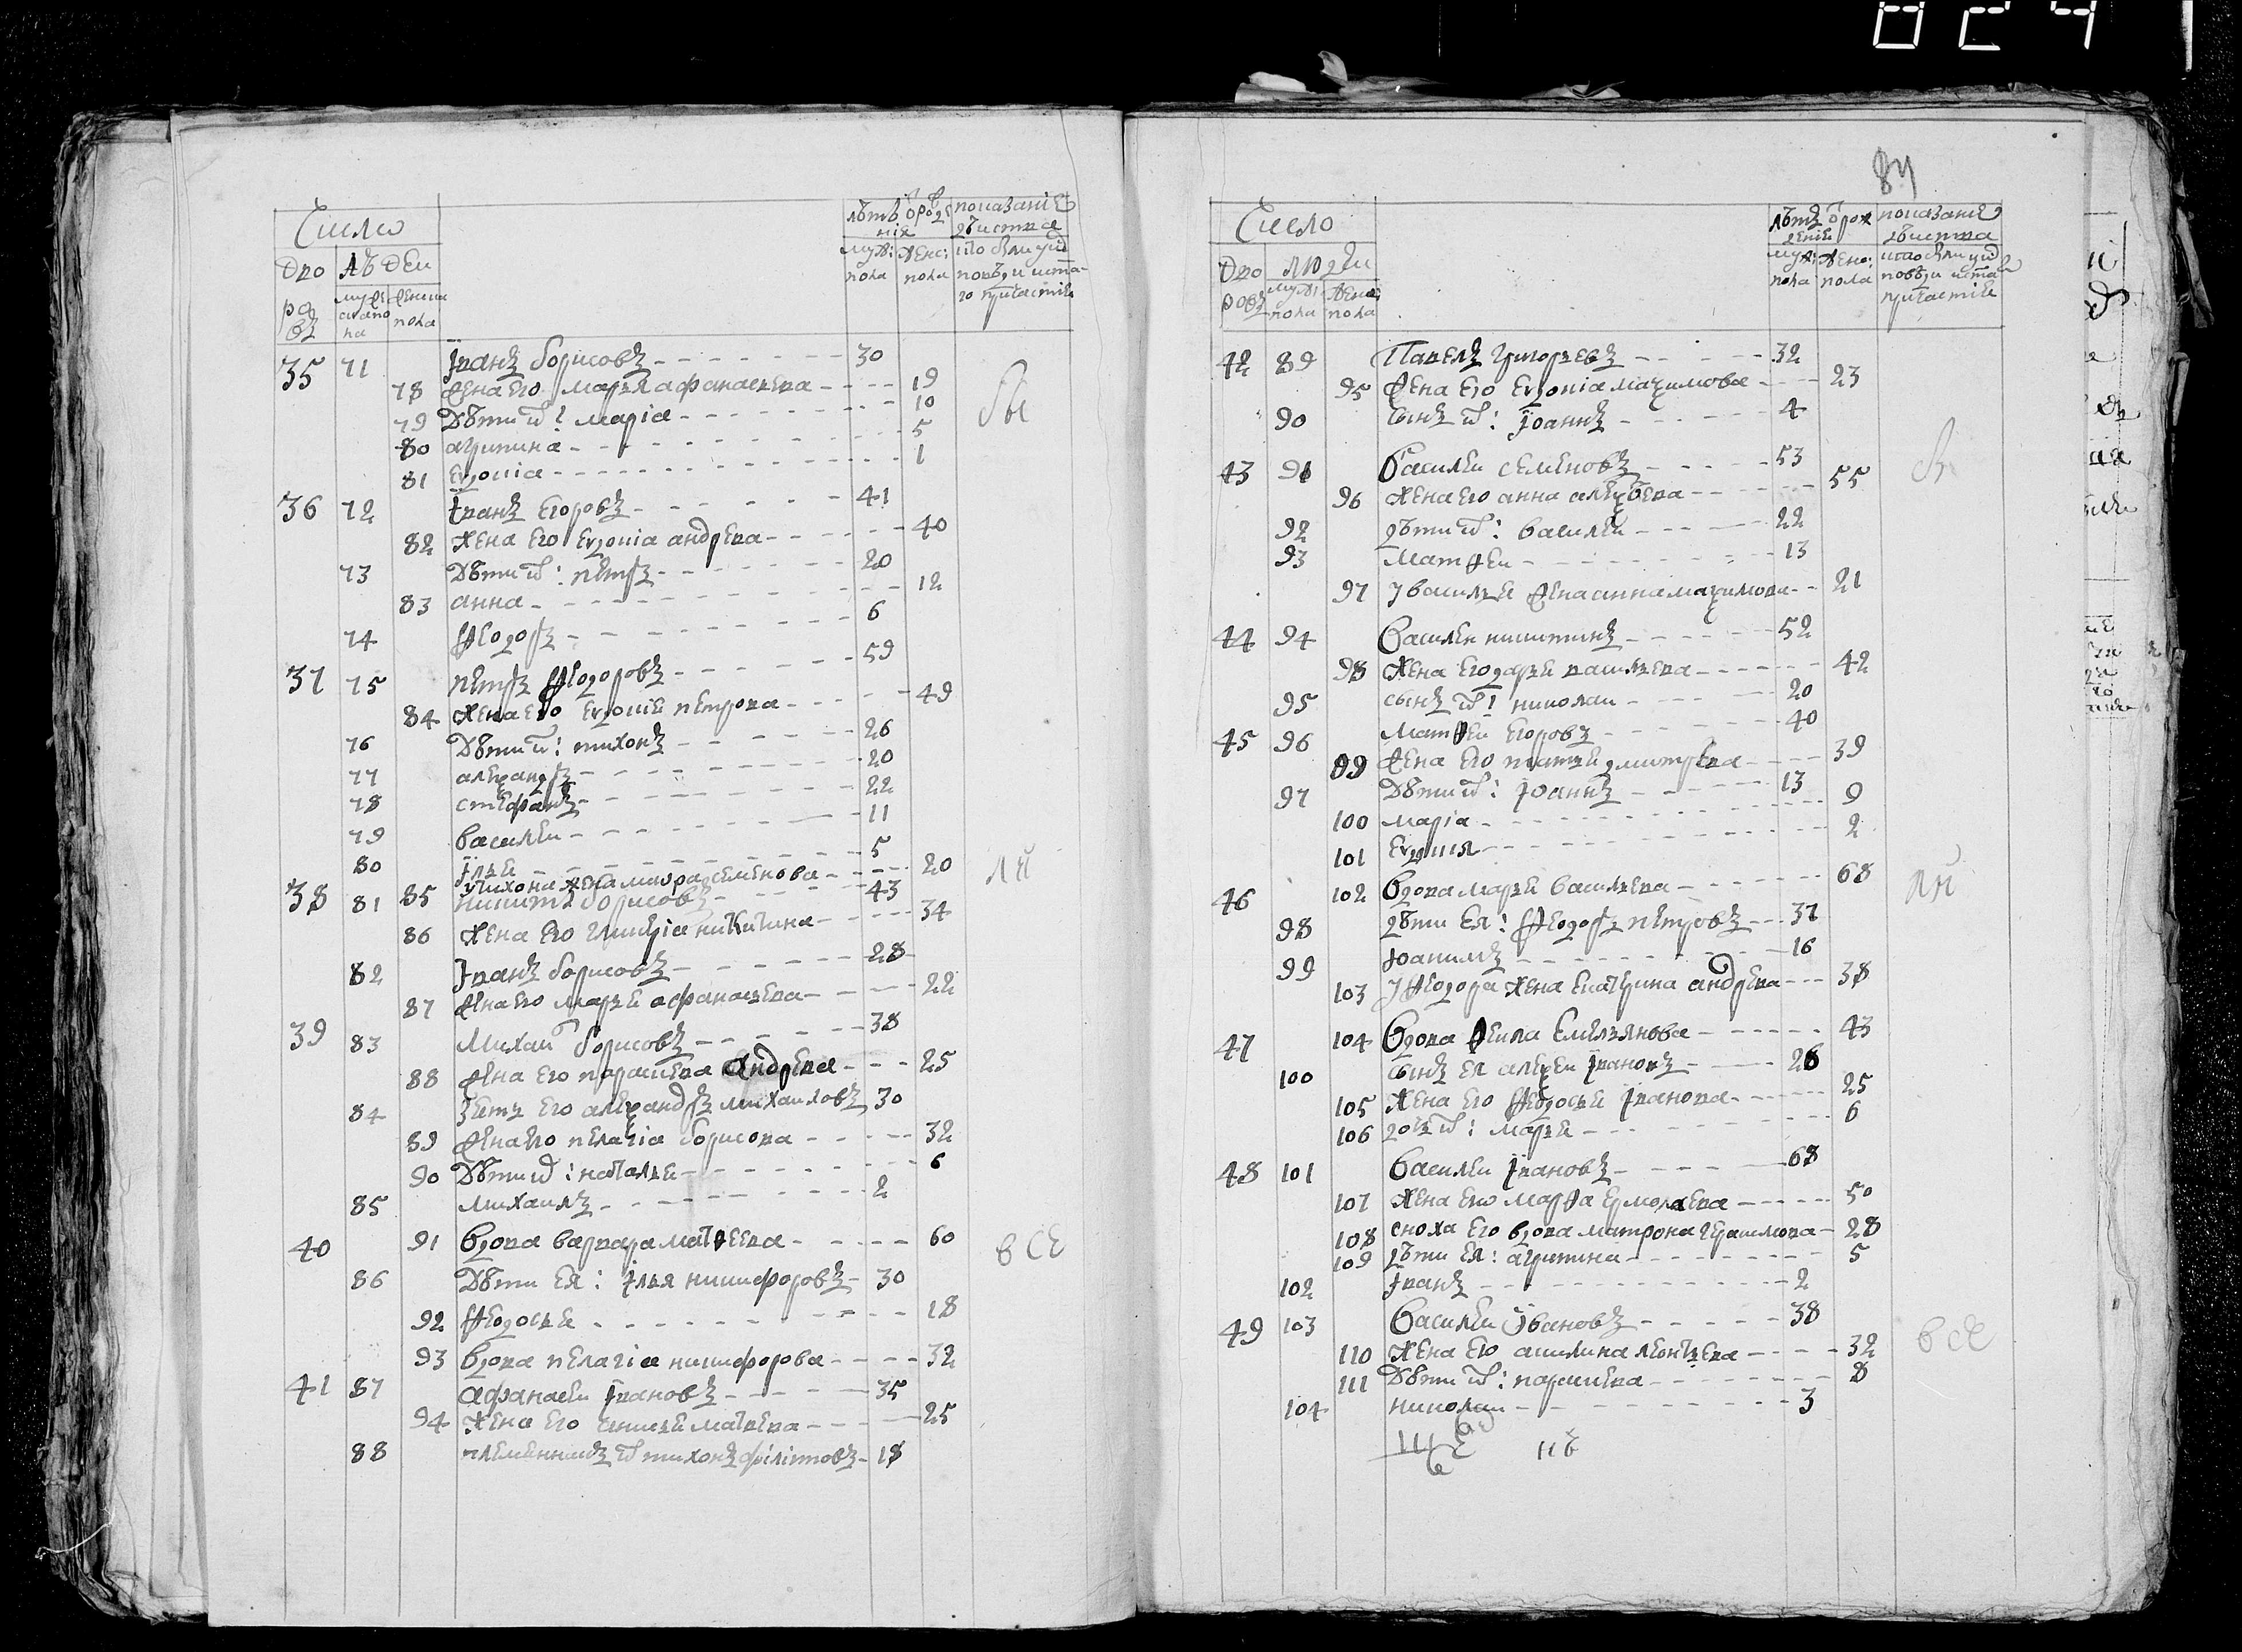 824
84
Число
дворовъ
людей
мужеска пола
женска пола
лѣтъ от рожденія
муж: пола
женс: пола
показаніе дѣйства
кто былъ у исповѣди и с̃та-
го причастія
35 71 Іванъ борисовъ 30
78 жена его марья афанасьева 19
79 Дѣти их: марiа 10
80 агрипина 5
81 Евдокiа 1
36 72 Іванъ Егоровъ 41
82 жена его Евдокiа андрева 40
73 Дѣти их: петръ 20
83 анна 12
74 Ѳеодоръ 6
37 75 петръ Ѳеодоровъ 59
84 жена его Евдокiа петрова 49
76 Дѣти их: тихонъ 26
77 алеѯандръ 20
78 стефанъ 22
79 василеи 11
80 Ілья 5
85 у тихона жена мавра семенова 20
38 81 никита борисовъ 43
86 жена его гликѣрiа никитина 34
82 Іванъ борисовъ 28
87 жена его марья афанасьева 22
39 83 Михаи борисовъ 38
88 жена его парасѣва андрева 25
84 зять его алеѯандръ михаиловъ 30
89 жена его пелагiа борисова 32
90 Дѣти их: наталья 6
85 михаилъ 2
40 91 вдова варвара матѳеева 60
86 Дѣти Ея: Ілья никифоровъ 30
92 Ѳеодосья 18
93 вдова пелагiа никифорова 32
41 87 афанасеи Івановъ 35
94 жена его матвева 25
88 племянникъ их тихонъ фiлiповъ 18
бы ли все
Число
дворовъ
люди
муж: пола
женс: пола
лѣтъ от рожденiя
муж: пола
женс: пола
показанiе дѣйства
кто былъ у исповѣди и с̃та
причастiя
42 89 Павелъ григорьевъ 32
95 жена его Евдокiа маѯимова 23
90 сынъ их: Іоаннъ 4
43 91 Василеи семеновъ 53
96 жена его анна алеѯѣева 55
92 дѣти их: василеи 22
93 матѳеи 13
97 у василья жена анна маѯимова 21
44 94 Василеи никитинъ 52
98 жена его дарья васильева 42
95 сынъ их николаи 20
45 96 Матѳеи Егоровъ 40
99 жена его дмитрева 39
97 Дѣти их: Іоаннъ 13
100 марiа 9
101 Евдокия 2
46 102 вдова марья васильева 68
98 дѣти Ея: Ѳеодоръ петровъ 37
99 Іоакимъ 16
103 у Ѳеодора жена Екатѣрина андрева 38
47 104 вдова Ѳекла Емельянова 43
100 сынъ Ея алеѯеи Івановъ 26
105 жена его Ѳеодосья Іванова 25
106 дочь их: марья 6
48 101 Василеи Івановъ 68
107 жена его марѳа Ермолаева 50
108 сноха его вдова матрона герасимова 28
109 дѣти Ея: агрипина 5
102 Іванъ 2
49 103 Василеи Івановъ 38
110 жена его акилина леонтьева 32
111 Дѣти их: парасѣва 8
104 николаи 3
бы ли все